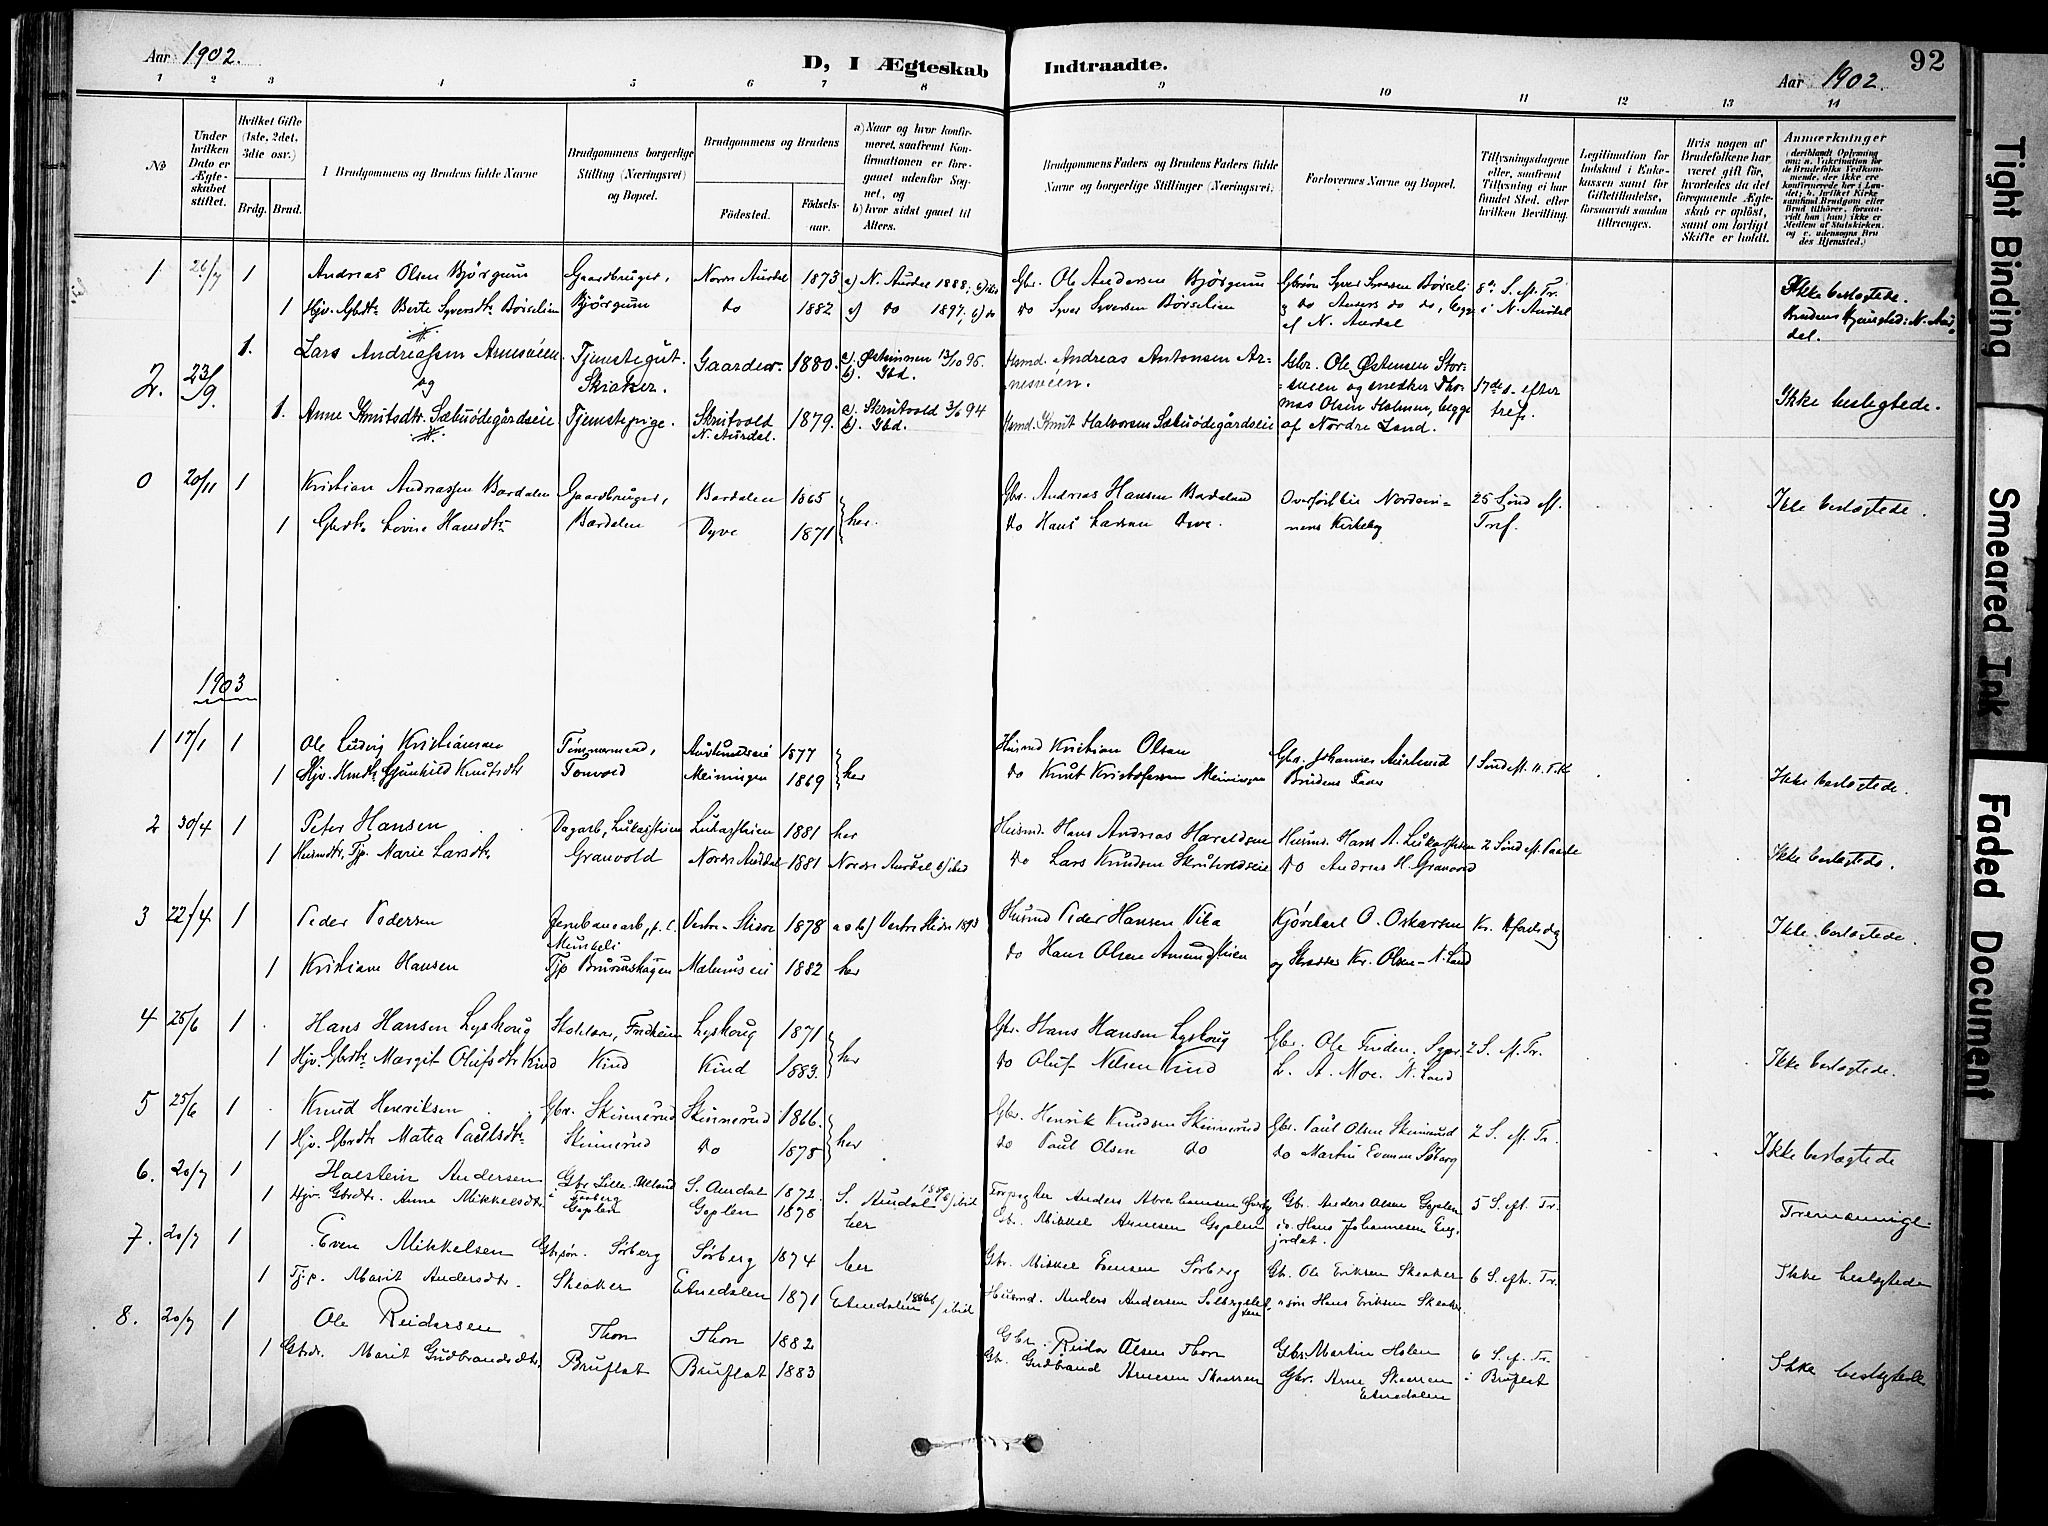 Aar 1902.
D, I Ægteskab Indtraadte.
92
Aar 1902.
1 2 3 4 5 6 7 8 9 10 11 12 13 14
No
Under hvilken Dato er Ægteskabet stiftet.
Hvilket Gifte (1ste, 2det, 3die osv.)
Brdg. Brud.
Brudgommens og Brudens fulde Navne
Brudgommens borgerlige Stilling (Næringsvei) og Bopæl.
Brudgommens og Brudens
Fødested.
Fødselsaar.
a) Naar og hvor konfirmeret, saafremt Konfirmationen er foregaaet udenfor Sognet, og
b) hvor sidst gaaet til Alters.
Brudgommens Faders og Brudens Faders fulde Navne og borgerlige Stillinger (Næringsvei.
Forlovernes Navne og Bopæl.
Tillysningsdagene eller, saafremt Tillysning ei har fundet Sted, efter hvilken Bevilling.
Legitimation for Indskud i Enkekassen samt for Giftetilladelse, forsaavidt saadan tiltrænges.
Hvis nogen af Brudefolkene har været gift før, hvorledes da det foregaaende Ægteskab er opløst, samt om lovligt Skifte er holdt.
Anmærkninger
1 26/7 1 Andreas Olsen Bjørgum Gaardbruger, Nordre Aurdal 1873 a) N. Aurdal 1888; b) ibd Gbr. Ole Andersen Bjørgum Gbrsøn Syver Syversen Børseli 8de S. eft. Tr. Ikke beslegtede.
1 Hjv. Gbrdtr. Berte Syversdtr Børselien Bjørgum do 1882 a) do 1897; b) do do Syver Syversen Børselien og do Anders do do, begge af N. Aurdal i N. Aurdal Brudens Hjemsted: N. Aurdal.
2. 23/9. 1. Lars Andreassen Arnesveen Tjenstegut. Skiaker. Gaarder 1880. a). Østsinnen 13/10 95. b). Ibd. Husmd. Andreas Antonsen Arnesveen. Gbr. Ole Østensen Storsveen og snedker Thomas Olsen Holmen, begge af Nordre Land. 17de s. efter tref. Ikke beslegtede.
og
1. Anne Knutsdtr. Sæbuødegårdseie Tjenstepige. Skrutvold N. Aurdal. 1879. a). Skrutvold 3/6 94 b). Ibd. Husmd. Knut Halvorsen Sæbuødegårdseie
0 20/11 1 Kristian Andreassen Bardalen Gaardbruger, Bardalen 1865 her. Gbr. Andreas Hansen Bardalen Overført til Nordsinnens Kirkebog 25 Sønd eft. Tref. Ikke beslegtede.
1 Gbrdtr Lovise Hansdtr Bardalen Dyve 1871 do Hans Larsen Dyve.
1903
1 17/1 1 Ole Ludvig Kristiansen Tømmermand, Austlundseie 1877 her Husmd Kristian Olsen Gbr. Johannes Austlund 1 Sønd eft. H. T. K. Ikke beslegtede.
1 Hjv. Husmdtr Gunhild Knutsdtr Tonvold Meiningen 1869 do Knut Kristofersen Meiningen Brudens Fader
2 30/4 1 Peter Hansen Dagarb, Lukasstuen Lukasstuen 1881 her Husmd. Hans Andreas Haraldsen Husmd. Hans A. Lukasstuen 2 Sønd eft. Paaske Ikke beslegtede.
1 Husmdtr, Tjp. Marie Larsdtr Granvold Nordre Aurdal 1881 Nordre Aurdal b) ibid do Lars Knudsen Skrutvoldseie do Andreas H. Granvold
3 22/4 1 Peder Pedersen Jernbanearb, Vestre-Slidre 1878 a & b) Vestre Slidre 1893 Husmd Peder Hansen Kjørekarl O. Oskarsen Kr. Ikke beslegtede.
1 Kristiane Hansen Tjp Mælumseie 1882 her do Hans Olsen Amundstuen og Skrædder Kr. Olsen - N. Land
4 25/6 1 Hans Hansen Lyshoug Fridheim Lyshoug 1871 her Gbr. Hans Hansen Lyshoug Gbr. Ole Finden. 2 S. eft. Tr. Ikke beslegtede.
1 Hjv. Gbrdtr Margit Olufsdtr Kind Kind Kind 1883. do Oluf Nilsen Kind L. A. Moe. N. Land
5 25/6 1 Knud Henriksen Gbr. Skinnerud Skinnerud 1866. her Gbr. Henrik Knudsen Skinnerud Gbr. Paul Olsen Skinnerud 2 S. eft. Tr. Ikke beslægtede
1 Hjv. Gbrdtr Matea Paulsdtr Skinnerud do 1878 do Paul Olsen do do Martin Evensen Søberg
6. 20/7 1 Halstein Andersen Gbr. Lille S. Aurdal 1872. S. Aurdal b) ibid Forpagter Anders Abrahamsen Gbr. Anders Olsen Goplen 5 S. eft. Tr. Tremenninge
1 Hjv. Gbrdtr. Anne Mikkelsdtr. Goplen Goplen 1878 her Gbr. Mikkel Arnesen Goplen Hans Johannessen Engjordet.
7. 20/7 1 Even Mikkelsen Gbrsøn. Sørberg Sørberg 1874 her Gbr. Mikkel Evensen Sørberg Gbr. Ole Eriksen Skeaker 6 S. eft. Tr. Ikke beslegtede
1 Tjp. Marit Andersdtr. Skeaker Etnedalen 1871 Etnedalen 1886 b) ibid Husmd. Anders Andersen søn Hans Eriksen Skeaker.
8. 20/7 1 Ole Reidarsen Thon Thon 1882 Gbr. Reidar Olsen Thon Gbr. Martin Holen 6 S. ef. Tr. Ikke beslegtede
1 Gbrdr. Marit Gudbrandsdtr. Bruflat Bruflat 1883 Gbr. Gudbrand Arnesen Skaarren Gbr. Arne Skaarren Etnedalen i Bruflat
Tight Binding
Smeared Ink
Faded Document